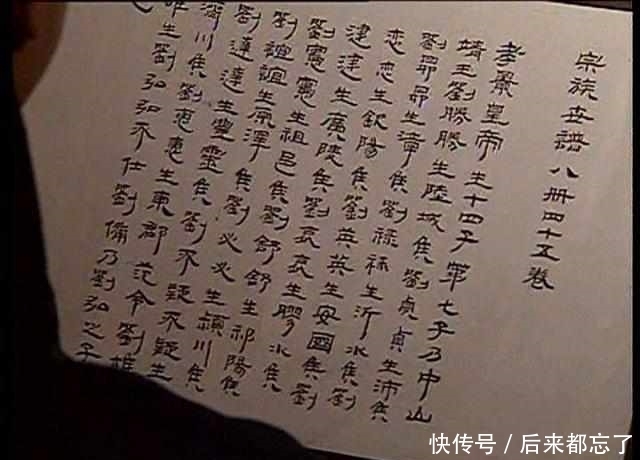 宗族世譜八冊四十五卷
孝景皇帝生十四子第七子乃中山
靖王劉勝勝生陸城侯劉貞貞生沛侯
劉昂昂生漳侯劉祿祿生沂水侯劉
恋恋生欽陽侯劉英英生安國侯劉
建建生廣陵侯劉哀哀生膠水侯
劉憲憲生祖邑侯劉舒舒生祁陽侯
劉誼誼生原澤侯劉必必生潁川侯
劉達達生靈侯劉不疑不疑生
濟川侯劉惠惠生東郡范令劉雄
生劉弘弘不仕劉備乃劉弘之子
快传号/后来都忘了